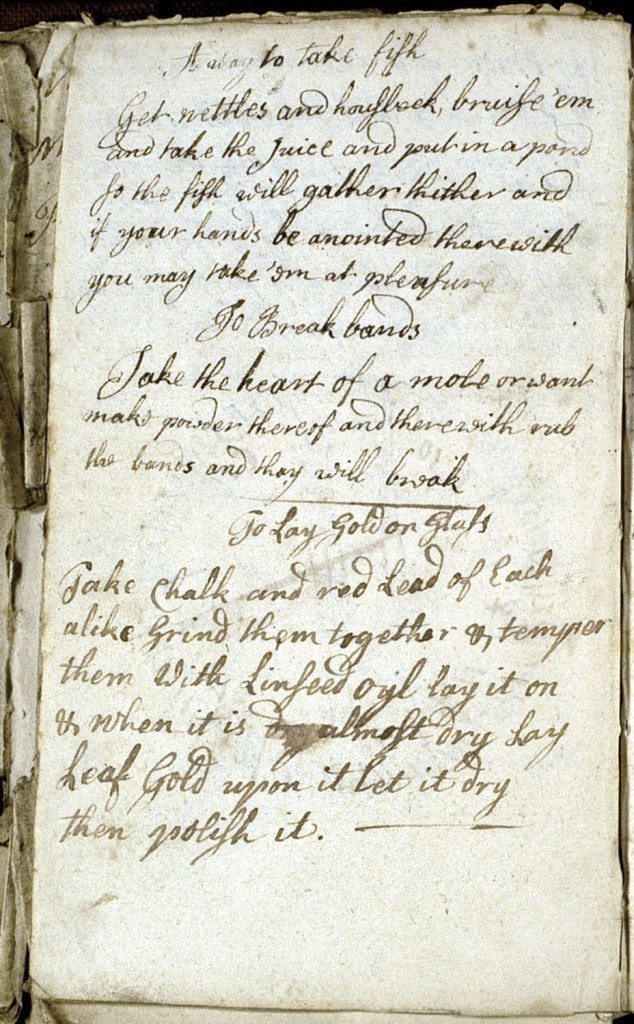 A way to take fish
Get nettles and housleek, bruise 'em
and take the Juice and put in a pond
so the fish will gather thither and
if your hands be anointed therewith
you may take 'em at pleasure
To Break bands
Take the heart of a mole or want
make powder thereof and therewith rub
the bands and thay will break
To Lay Gold on Glass
Take Chalk and red Lead of Each
alike Grind them together & temper
them With Linseed oyl lay it on
& when it is almost dry Lay
Leaf Gold upon it let it dry
then polish it.